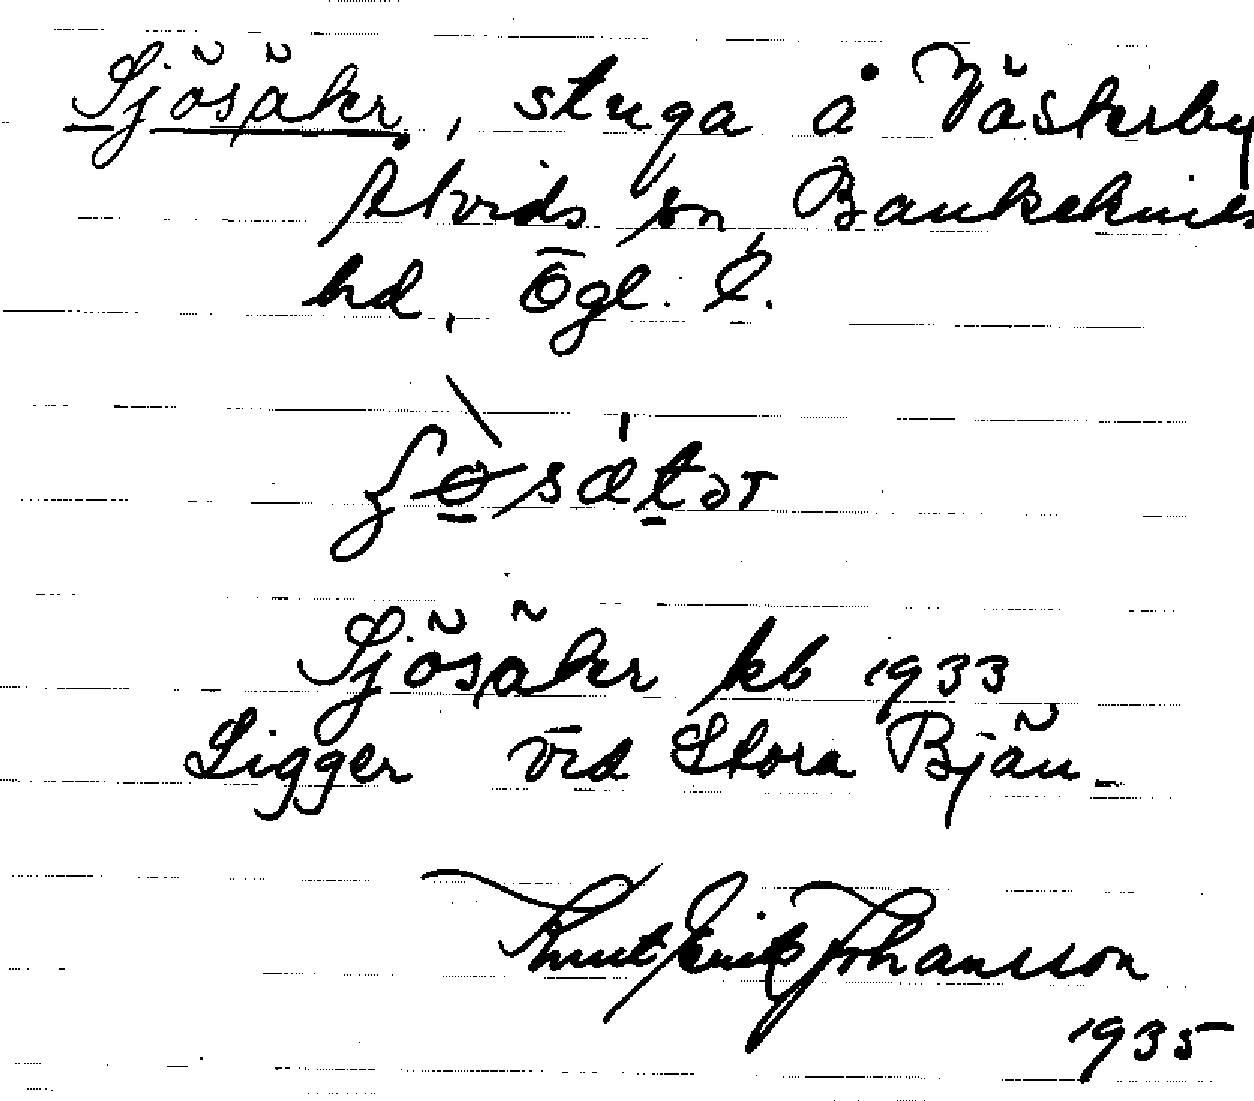 Sjösäker, stuga å Västerby
Åtvids sn, Bankekinds
hd, Ögl. l.
Sjösäker kb 1933
Ligger vid Stora Bjän
Knut Erik Johansson
1935